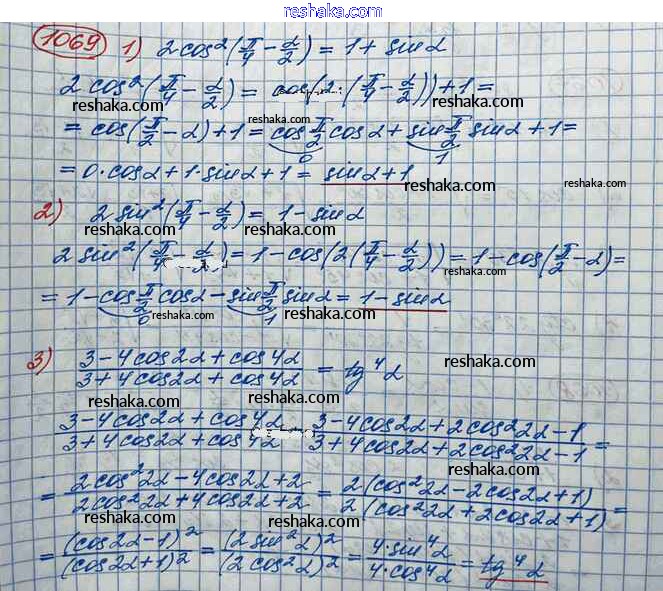 reshaka.com
1069 1) 2cos²(π/4 − α/2) = 1 + sinα
2cos²(π/4 − α/2) = cos(2·(π/4 − α/2)) + 1 =
reshaka.com reshaka.com
= cos(π/2 − α) + 1 = cos π/2 cosα + sin π/2 sinα + 1 =
0 1
reshaka.com
= 0·cosα + 1·sinα + 1 = sinα + 1
reshaka.com reshaka.com
2) 2sin²(π/4 − α/2) = 1 − sinα
reshaka.com
2sin²(π/4 − α/2) = 1 − cos(2(π/4 − α/2)) = 1 − cos(π/2 − α) =
reshaka.com
= 1 − cos π/2 cosα − sin π/2 sinα = 1 − sinα
0 1
reshaka.com reshaka.com reshaka.com
3) (3 − 4cos2α + cos4α)/(3 + 4cos2α + cos4α) = tg⁴α
reshaka.com
reshaka.com
(3 − 4cos2α + cos4α)/(3 + 4cos2α + cos4α) = (3 − 4cos2α + 2cos²2α − 1)/(3 + 4cos2α + 2cos²2α − 1) =
reshaka.com
= (2cos²2α − 4cos2α + 2)/(2cos²2α + 4cos2α + 2) = (2(cos²2α − 2cos2α + 1))/(2(cos²2α + 2cos2α + 1)) =
reshaka.com reshaka.com
= (cos2α − 1)²/(cos2α + 1)² = (2sin²α)²/(2cos²α)² = (4·sin⁴α)/(4·cos⁴α) = tg⁴α
reshaka.com reshaka.com